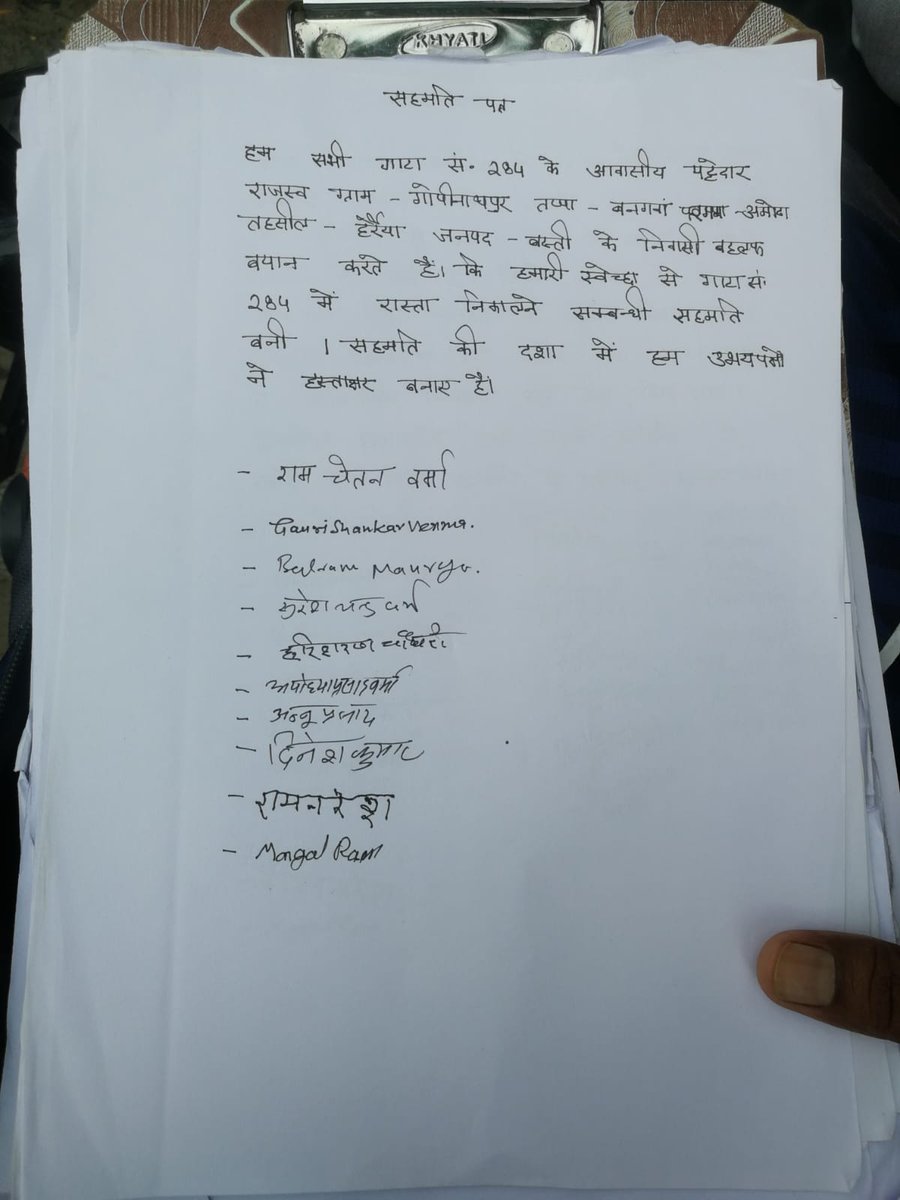 KHYATI
सहमति पत्र
हम सभी गाटा सं॰ 284 के आवासीय पट्टेदार
राजस्व ग्राम - गोपीनाथपुर तप्पा - बनगवां परगना - अमोढा
तहसील - हर्रैया जनपद - बस्ती के निवासी बहलफ
बयान करते हैं। कि हमारी स्वेच्छा से गाटा सं॰
284 में रास्ता निकालने सम्बन्धी सहमति
बनी । सहमति की दशा में हम उभयपक्षों
ने हस्ताक्षर बनाए हैं।
- राम चेतन वर्मा
- Gauri Shankar Verma.
- Balram Maurya.
- सुरेश चन्द्र वर्मा
- हरिशरण चौधरी
- अयोध्या प्रसाद वर्मा
- अन्नू प्रसाद
- दिनेश कुमार
- रामनरेश
- Mangal Ram